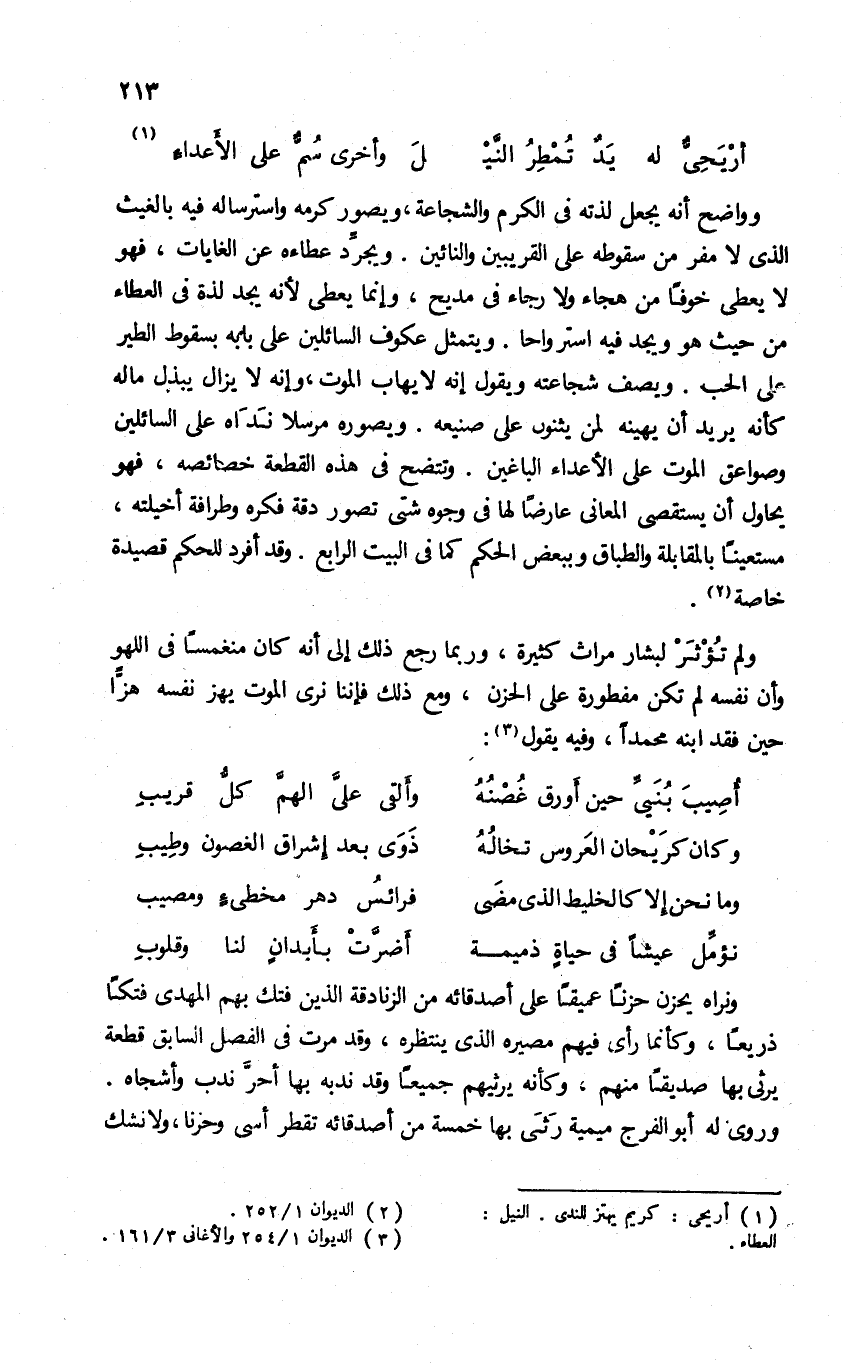 ٢١٣
أرْيَحِىٌّ له يَدٌ تُمْطِرُ النَّيْـ ـلَ وأخرى سُمٌّ على الأَعداءِ (١)
وواضح أنه يجعل لذته فى الكرم والشجاعة ، ويصور كرمه واسترساله فيه بالغيث
الذى لا مفر من سقوطه على القريبين والنائين . ويجرِّد عطاءه عن الغايات ، فهو
لا يعطى خوفًا من هجاء ولا رجاء فى مديح ، وإنما يعطى لأنه يجد لذة فى العطاء
من حيث هو ويجد فيه استرواحا . ويتمثل عكوف السائلين على بابه بسقوط الطير
على الحب . ويصف شجاعته ويقول إنه لا يهاب الموت ، وإنه لا يزال يبذل ماله
كأنه يريد أن يهينه لمن يثنون على صنيعه . ويصوره مرسلا نَدَاه على السائلين
وصواعق الموت على الأعداء الباغين . وتتضح فى هذه القطعة خصائصه ، فهو
يحاول أن يستقصى المعانى عارضًا لها فى وجوه شتى تصور دقة فكره وطرافة أخيلته ،
مستعينًا بالمقابلة والطباق وببعض الحكم كما فى البيت الرابع . وقد أفرد للحكم قصيدة
خاصة (٢) .
ولم تُؤْثَرْ لبشار مراث كثيرة ، وربما رجع ذلك إلى أنه كان منغمسًا فى اللهو
وأن نفسه لم تكن مفطورة على الحزن ، ومع ذلك فإننا نرى الموت يهز نفسه هزًّا
حين فقد ابنه محمداً ، وفيه يقول (٣) :
أُصِيبَ بُنَيىَّ حين أورق غُصْنُهُ وألقى علىَّ الهمَّ كلُّ قريبِ
وكان كرَيْحان العَروس تخالُهُ ذَوَى بعد إشراق الغصون وطِيبِ
وما نحن إلا كالخليط الذى مضَى فرائسُ دهر مخطىءٍ ومصيب
نؤمِّل عيشاً فى حياةٍ ذميمـــة أضرَّتْ بأَبدانٍ لنا وقلوبِ
ونراه يحزن حزنًا عميقًا على أصدقائه من الزنادقة الذين فتك بهم المهدى فتكًا
ذريعًا ، وكأنما رأى فيهم مصيره الذى ينتظره ، وقد مرت فى الفصل السابق قطعة
يرثى بها صديقًا منهم ، وكأنه يرثيهم جميعًا وقد ندبه بها أحرَّ ندب وأشجاه .
وروى له أبو الفرج ميمية رَثَى بها خمسة من أصدقائه تقطر أسى وحزنا ، ولا نشك
(١) أريحى : كريم يهتز للندى . النيل :
العطاء .
(٢) الديوان ٢٥٢/١ .
(٣) الديوان ٢٥٤/١ والأغانى ١٦١/٣ .